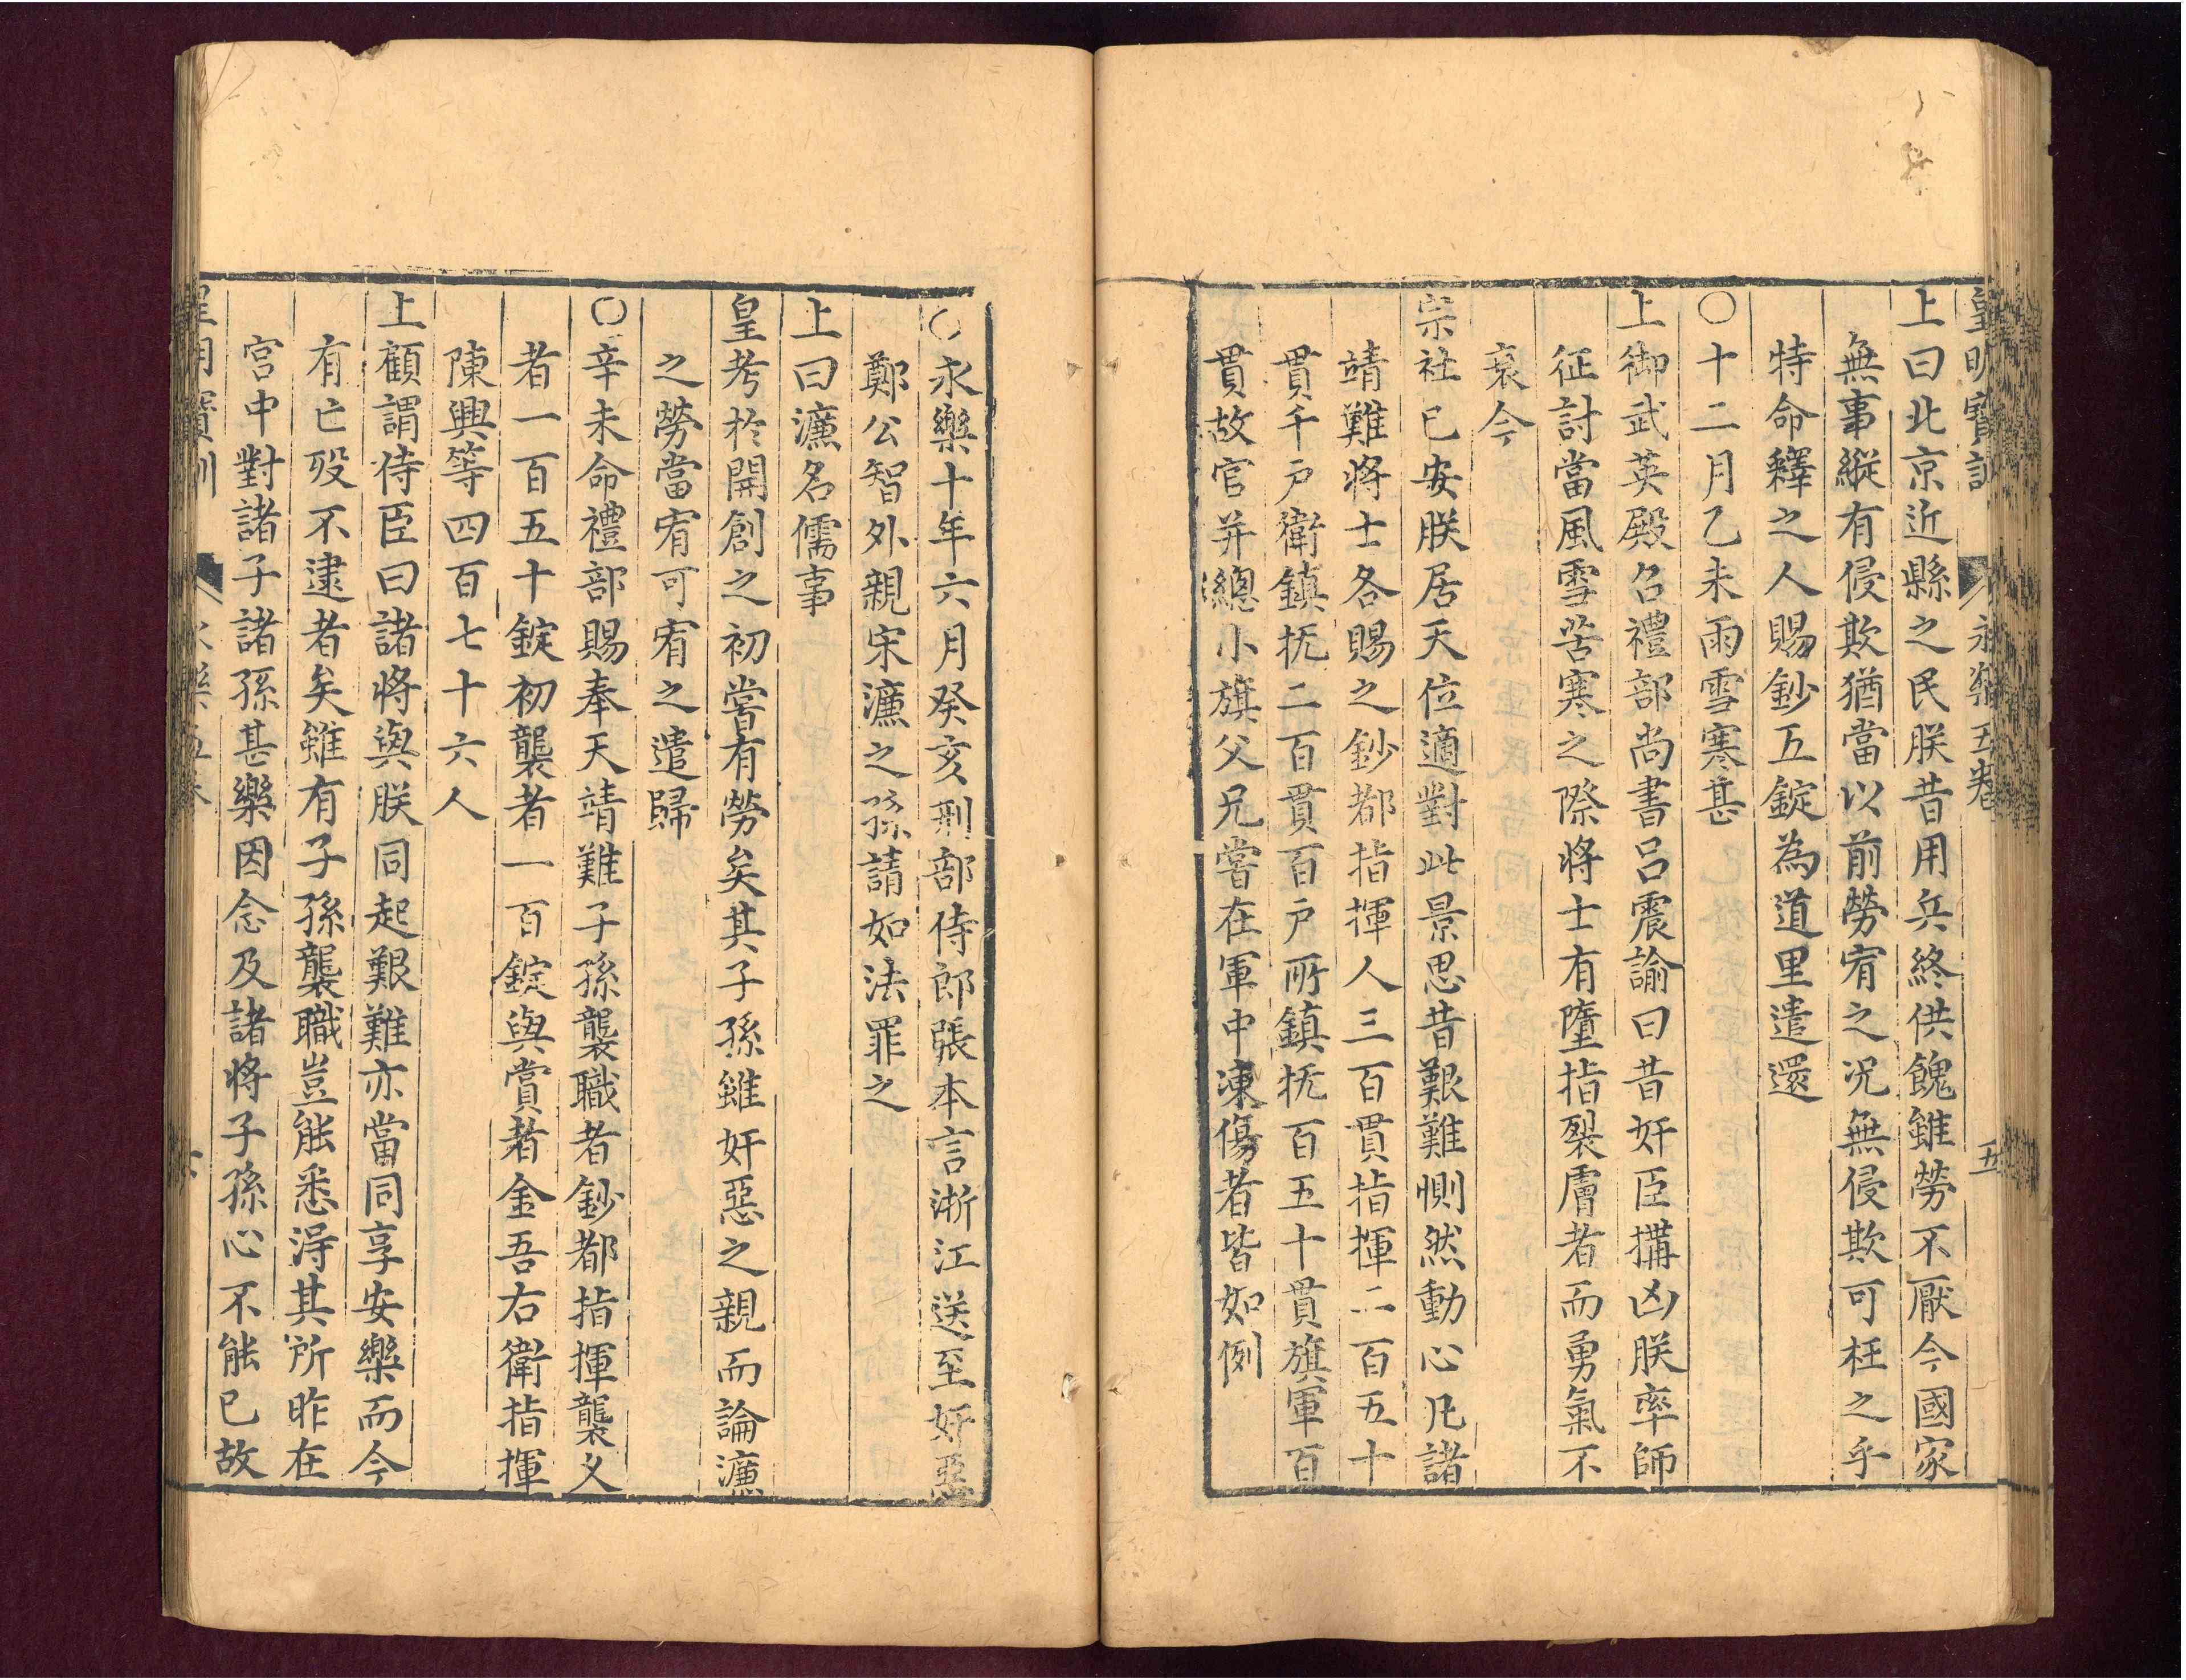 皇明寶訓 永樂五卷 五
上曰北京近縣之民朕昔用兵終供餽雖勞不厭今國家
無事縱有侵欺猶當以前勞宥之况無侵欺可枉之乎
特命釋之人賜鈔五錠為道里遣還
○十二月乙未雨雪寒甚
上御武英殿召禮部尚書呂震諭曰昔奸臣搆凶朕率師
征討當風雪苦寒之際將士有墮指裂膚者而勇氣不
衰今
宗社已安朕居天位適對此景思昔艱難惻然動心凡諸
靖難將士各賜之鈔都指揮人三百貫指揮二百五十
貫千戶衛鎮撫二百貫百戶所鎮撫百五十貫旗軍百
貫故官并總小旗父兄嘗在軍中凍傷者皆如例
○永樂十年六月癸亥刑部侍郎張本言浙江送至奸惡
鄭公智外親宋濂之孫請如法罪之
上曰濂名儒事
皇考於開創之初嘗有勞矣其子孫雖奸惡之親而論濂
之勞當宥可宥之遣歸
○辛未命禮部賜奉天靖難子孫襲職者鈔都指揮襲乂
者一百五十錠初襲者一百錠與賞者金吾右衛指揮
陳興等四百七十六人
上顧謂侍臣曰諸將與朕同起艱難亦當同享安樂而今
有亡歿不逮者矣雖有子孫襲職豈能悉淂其所昨在
宮中對諸子諸孫甚樂因念及諸將子孫心不能已故
皇明寶訓 永樂五卷